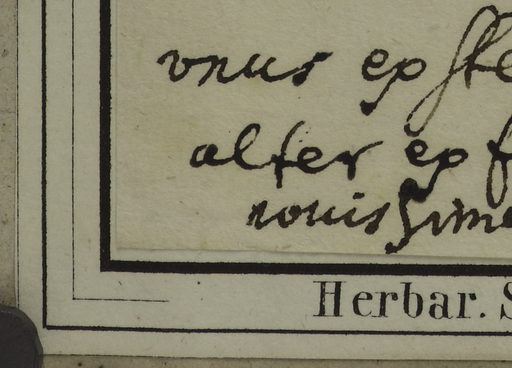 vnus ex ste
alter ex f
nouissime
Herbar. S